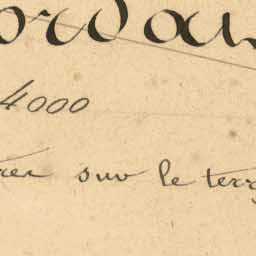 ordan
4000
rer sur le terr